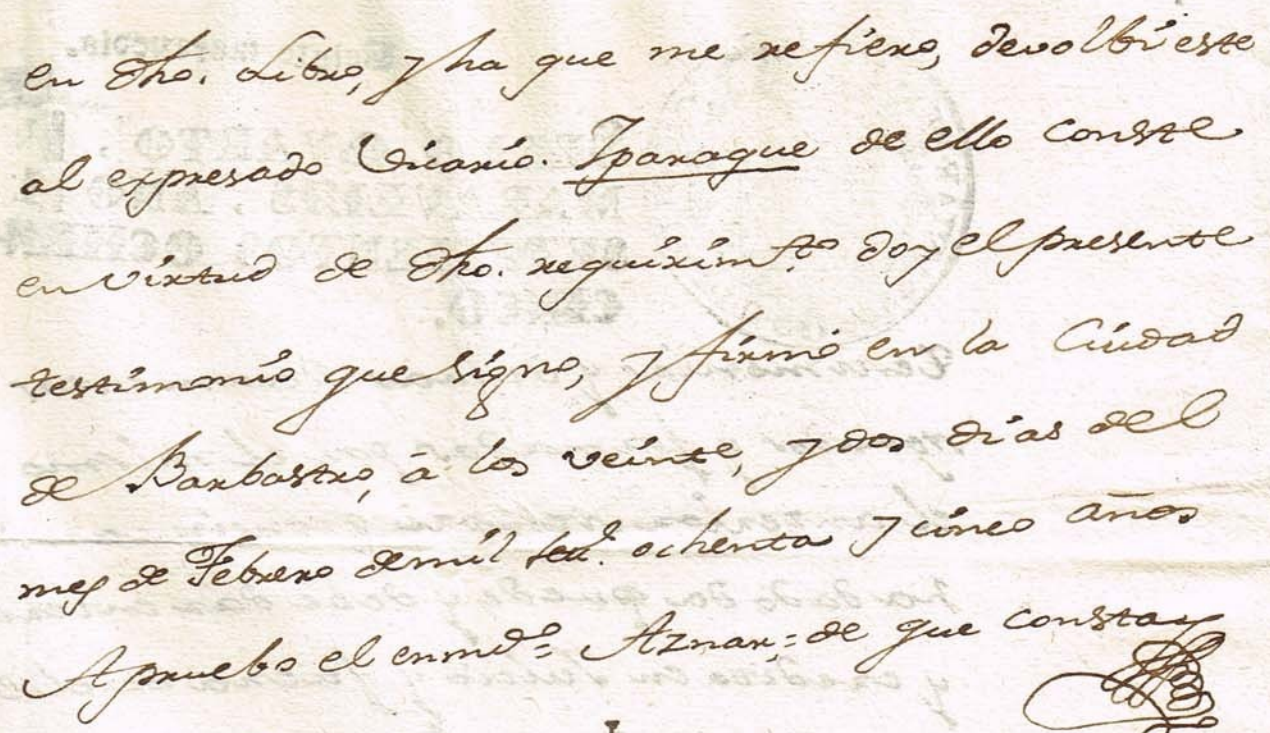 en dho. Libro, y ha que me refiero, devolbi este
al expresado Vicario. Yparaque de ello conste
en virtud de dho. requirimto. doy el presente
testimonio que signo, y firmo en la Ciudad
de Barbastro, à los veinte, y dos dias del
mes de Febrero de mil sett.s ochenta y cinco años
Apruebo el enmdo.= Aznar,= de que consta=